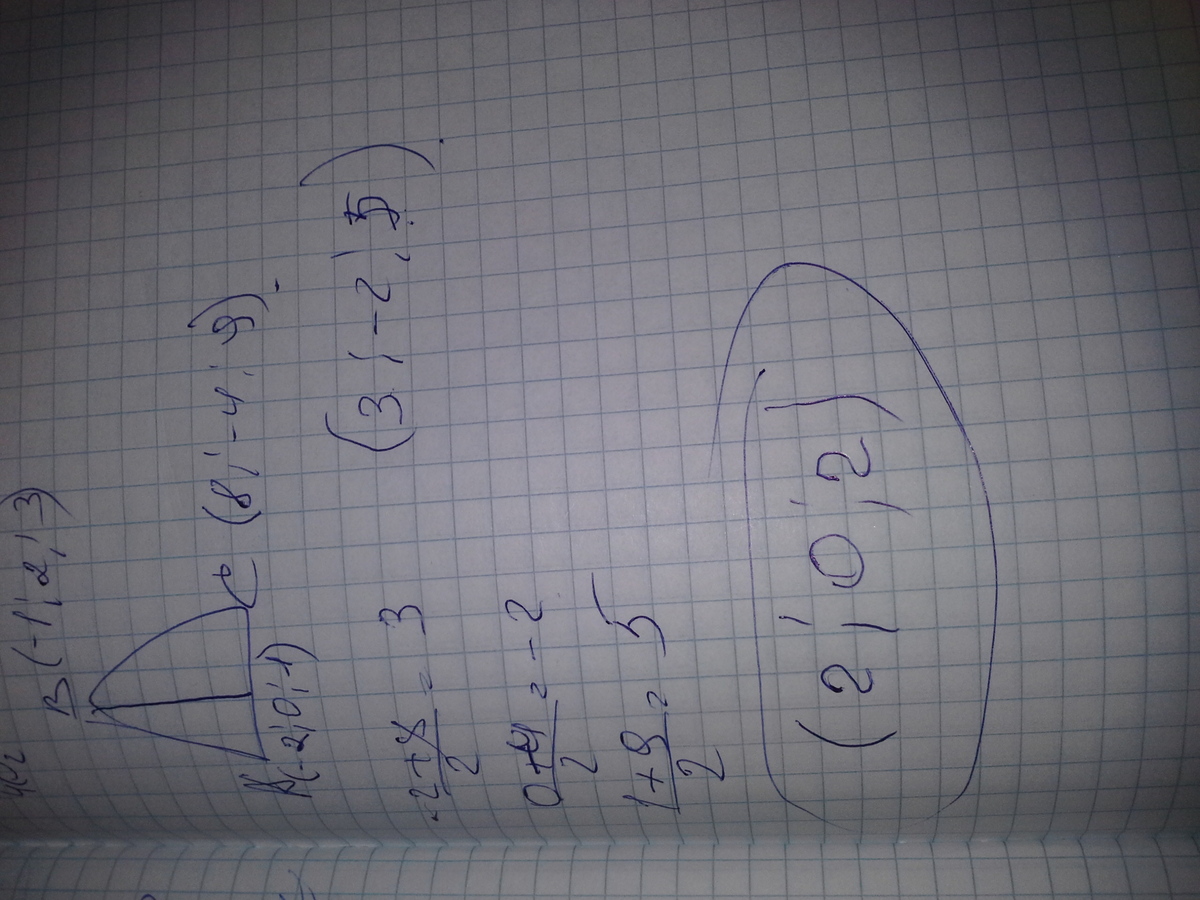 B(-1; 2; 3)
A(-2; 0; 1)
C (8; -4; 9).
-2+8/2 = 3
(3; -2; 5).
0+-4/2 = -2
1+9/2 = 5
(2; 0; 2)